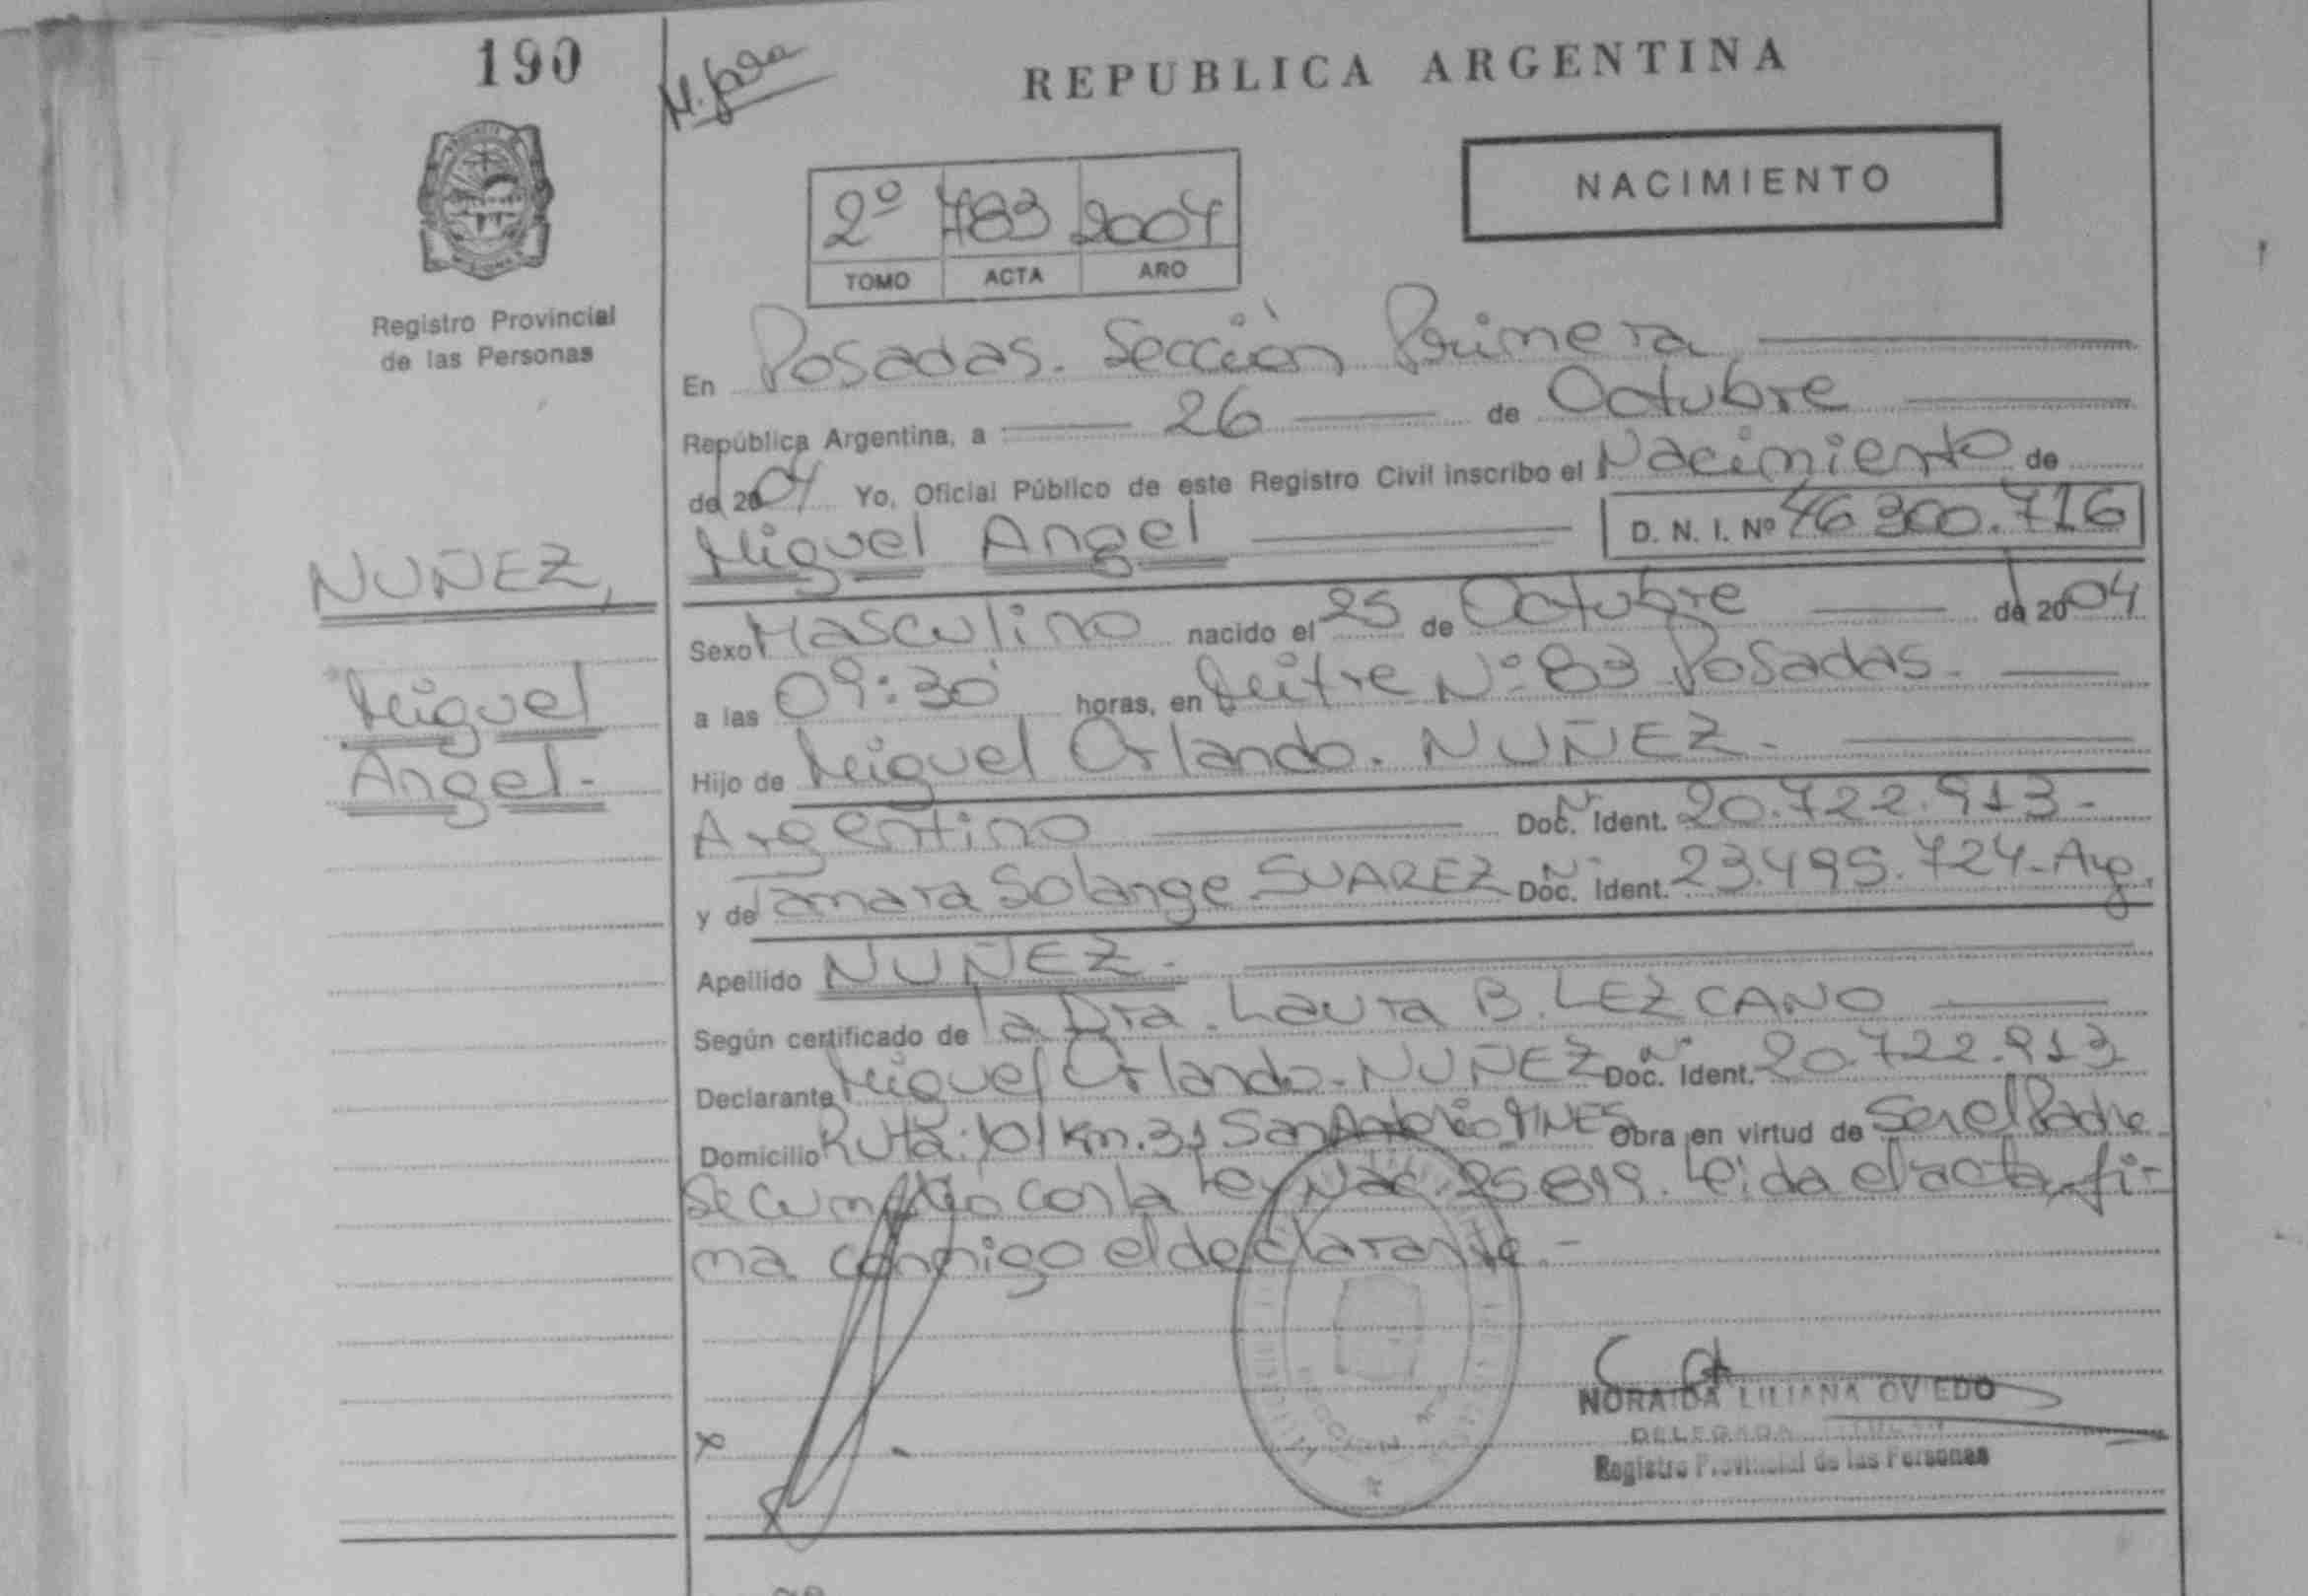 190
REPUBLICA ARGENTINA
NACIMIENTO
2º 783 2004
TOMO ACTA AÑO
Registro Provincial
de las Personas
En Posadas. Sección Primera
República Argentina, a 26 de Octubre
de 2004 Yo, Oficial Público de este Registro Civil inscribo el Nacimiento de
Miguel Angel D. N. I. Nº 46.300.716
NUÑEZ,
Miguel
Angel.-
Sexo Masculino nacido el 25 de Octubre de 2004
a las 09:30 horas, en Mitre Nº 83 Posadas.
Hijo de Miguel Orlando. NUÑEZ.-
Argentino Doc. Ident. 20.722.913-
y de Tamara Solange SUAREZ Doc. Ident. 23.495.724-Arg.
Apellido NUÑEZ.-
Según certificado de la Dra. Laura B. LEZCANO
Declarante Miguel Orlando-NUÑEZ Doc. Ident. 20.722.913
Domicilio Ruta: 101 Km. 31 San Antonio MNES Obra en virtud de Ser el Padre
Se cumplio con la Ley Nac. 25.819. Leida el acta, fir-
ma conmigo el declarante.-
NORAIDA LILIANA OVIEDO
DELEGADA TITULAR
Registro Provincial de las Personas